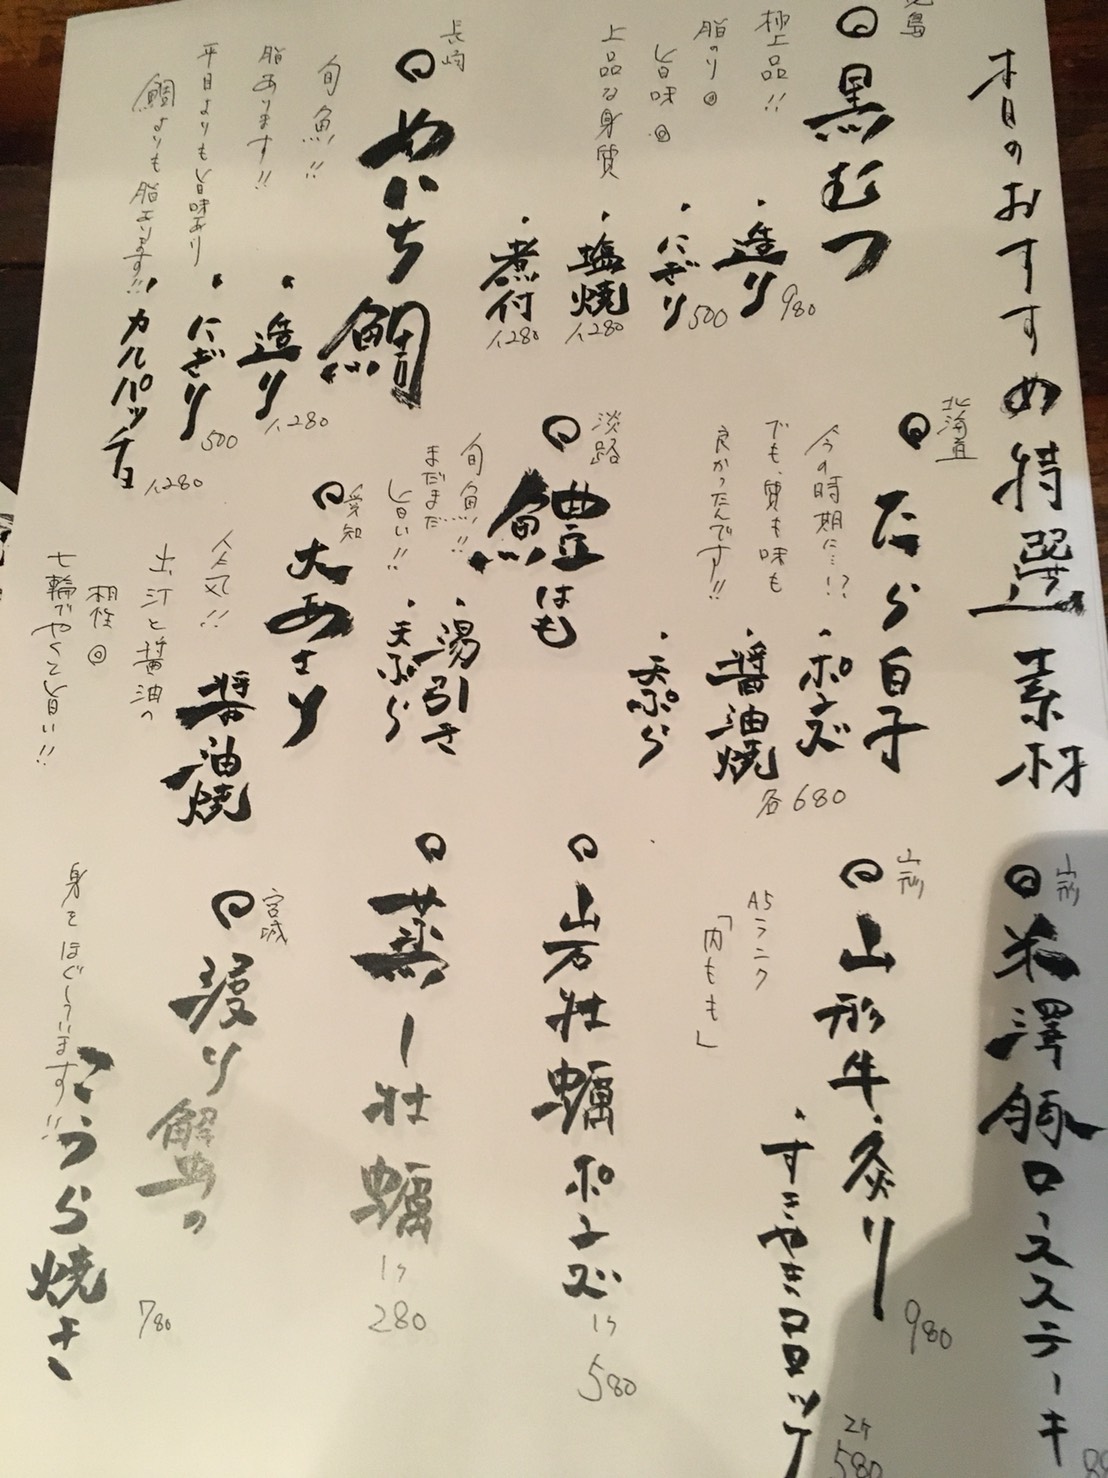 本日のおすすめ特選素材
児島
黒むつ
極上品!!
脂のり◎
旨味◎
上品な身質
・造り 980
・にぎり 500
・塩焼 1,280
・煮付 1,280
長崎
めいち鯛
旬魚!!
脂あります!!
平目よりも旨味あり
鯛よりも脂あります!!
・造り 1,280
・にぎり 500
・カルパッチョ 1,280
北海道
たら白子
今の時期に…!?
でも、質も味も
良かったんです!!
・ポン
・醤油焼
・天ぷら
各680
淡路
鱧はも
旬魚!!
まだまだ
旨い!!
・湯引き
・天ぷら
愛知
大あさり
人気!!
出汁と醤油の
相性◎
七輪でやくと旨い!!
醤油焼
山形
米澤豚ロースステーキ
山形
山形牛
A5ランク
「内もも」
・炙り 980
・すきやきコロッケ
2ケ 580
岩牡蠣ポン
1ケ 580
蒸し牡蠣
1ケ 280
宮城
渡り蟹の
こうら焼き
身をほぐしています!!
780